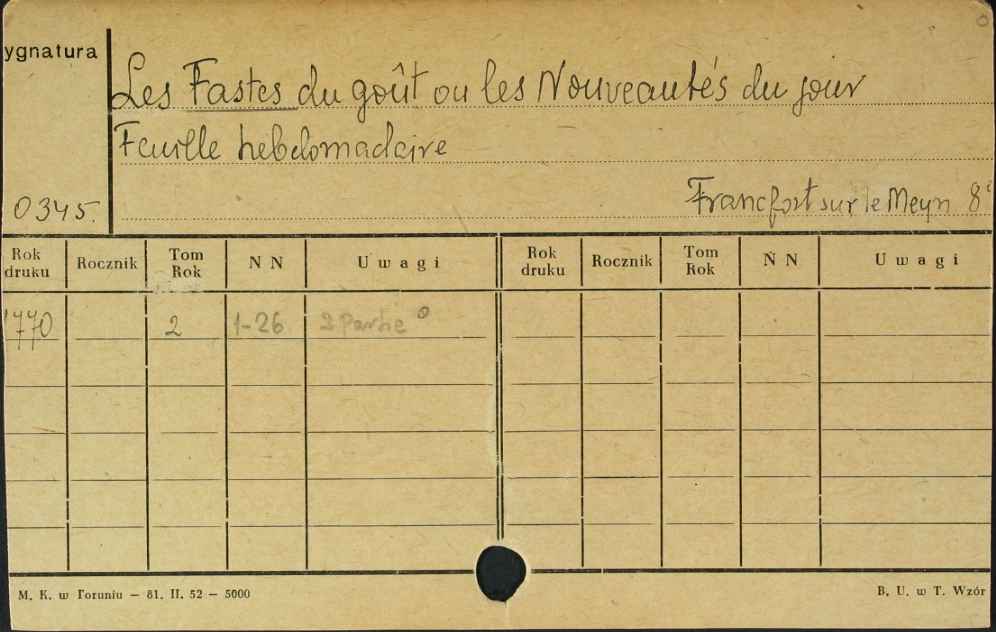 ygnatura
Les Fastes du goût ou les Nouveautés du jour
Feuille hebdomadaire
0345.
Francfort sur le Meyn 8°
Rok druku Rocznik Tom Rok N N Uwagi Rok druku Rocznik Tom Rok N N Uwagi
1770 2 1-26 2 Partie °
M. K. w Toruniu — 81. II. 52 — 5000
B. U. w T. Wzór